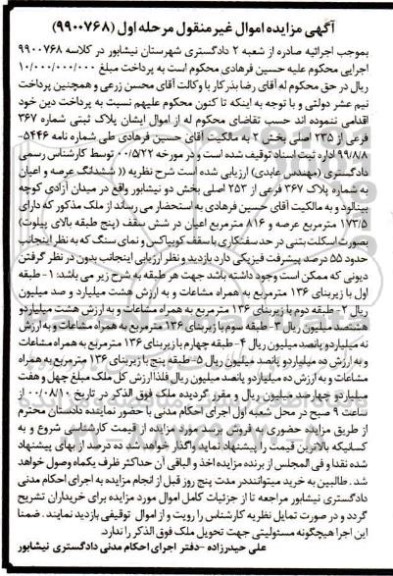 آگهی مزایده اموال غیر منقول مرحله اول (۹۹۰۰۷۶۸)
بموجب اجرائیه صادره از شعبه ۲ دادگستری شهرستان نیشابور در کلاسه ۹۹۰۰۷۶۸
اجرایی محکوم علیه حسین فرهادی محکوم است به پرداخت مبلغ ۱۰/۰۰۰/۰۰۰/۰۰۰
ریال در حق محکوم له آقای رضا بذرکار با وکالت آقای محسن زرعی و همچنین پرداخت
نیم عشر دولتی و با توجه به اینکه تا کنون محکوم علیهم نسبت به پرداخت دین خود
اقدامی ننموده اند حسب تقاضای محکوم له از اموال ایشان پلاک ثبتی شماره ۳۶۷
فرعی از ۲۳۵ اصلی بخش ۲ به مالکیت آقای حسین فرهادی طی شماره نامه ۵۴۴۶-
۹۹/۸/۸ اداره ثبت اسناد توقیف شده است و در مورخه ۰۰/۵/۲۲ توسط کارشناس رسمی
دادگستری (مهندس عابدی) ارزیابی شده است شرح نظریه (( ششدانگ عرصه و اعیان
به شماره پلاک ۳۶۷ فرعی از ۲۵۳ اصلی بخش دو نیشابور واقع در میدان آزادی کوچه
بینالود و به مالکیت آقای حسین فرهادی به استحضار می رساند از ملک مذکور که دارای
۱۷۳/۵ مترمربع عرصه و ۸۱۶ مترمربع اعیان در شش سقف (پنج طبقه بالای پیلوت)
بصورت اسکلت بتنی در حد سفتکاری با سقف کوبیاکس و نمای سنگ که به نظر اینجانب
حدود ۵۵ درصد پیشرفت فیزیکی دارد بازدید و نظر ارزیابی اینجانب بدون در نظر گرفتن
دیونی که ممکن است وجود داشته باشد جهت هر طبقه به شرح زیر می باشد: ۱- طبقه
اول با زیربنای ۱۳۶ مترمربع به همراه مشاعات و به ارزش هشت میلیارد و صد میلیون
ریال ۲- طبقه دوم با زیربنای ۱۳۶ مترمربع به همراه مشاعات و به ارزش هشت میلیاردو
هشتصد میلیون ریال ۳- طبقه سوم با زیربنای ۱۳۶ مترمربع به همراه مشاعات و به ارزش
نه میلیاردو پانصد میلیون ریال ۴- طبقه چهارم با زیربنای ۱۳۶ مترمربع به همراه مشاعات
و به ارزش ده میلیاردو پانصد میلیون ریال ۵- طبقه پنج با زیربنای ۱۳۶ مترمربع به همراه
مشاعات و به ارزش ده میلیاردو پانصد میلیون ریال فلذا ارزش کل ملک مبلغ چهل و هفت
میلیاردو چهارصد میلیون ریال و مقرر گردیده ملک فوق الذکر در تاریخ ۰۰/۰۸/۱۰ از
ساعت ۹ صبح در محل شعبه اول اجرای احکام مدنی با حضور نماینده دادستان محترم
از طریق مزایده حضوری به فروش رسد مورد مزایده از قیمت کارشناسی شروع و به
کسانیکه بالاترین قیمت را پیشنهاد نماید واگذار خواهد شد ده درصد از بهای پیشنهاد
شده نقدا و فی المجلس از برنده مزایده اخذ و الباقی آن حداکثر ظرف یکماه وصول خواهد
شد . طالبین به خرید میتوانند در مدت پنج روز قبل از انجام مزایده به اجرای احکام مدنی
دادگستری نیشابور مراجعه تا از جزئیات کامل اموال مورد مزایده برای خریداران تشریح
گردد و در صورت تمایل نظریه کارشناس را رویت و از اموال توقیفی بازدید نمایند . ضمنا
این اجرا هیچگونه مسئولیتی جهت تحویل ملک فوق الذکر را ندارد.
علی حیدرزاده -دفتر اجرای احکام مدنی دادگستری نیشابور